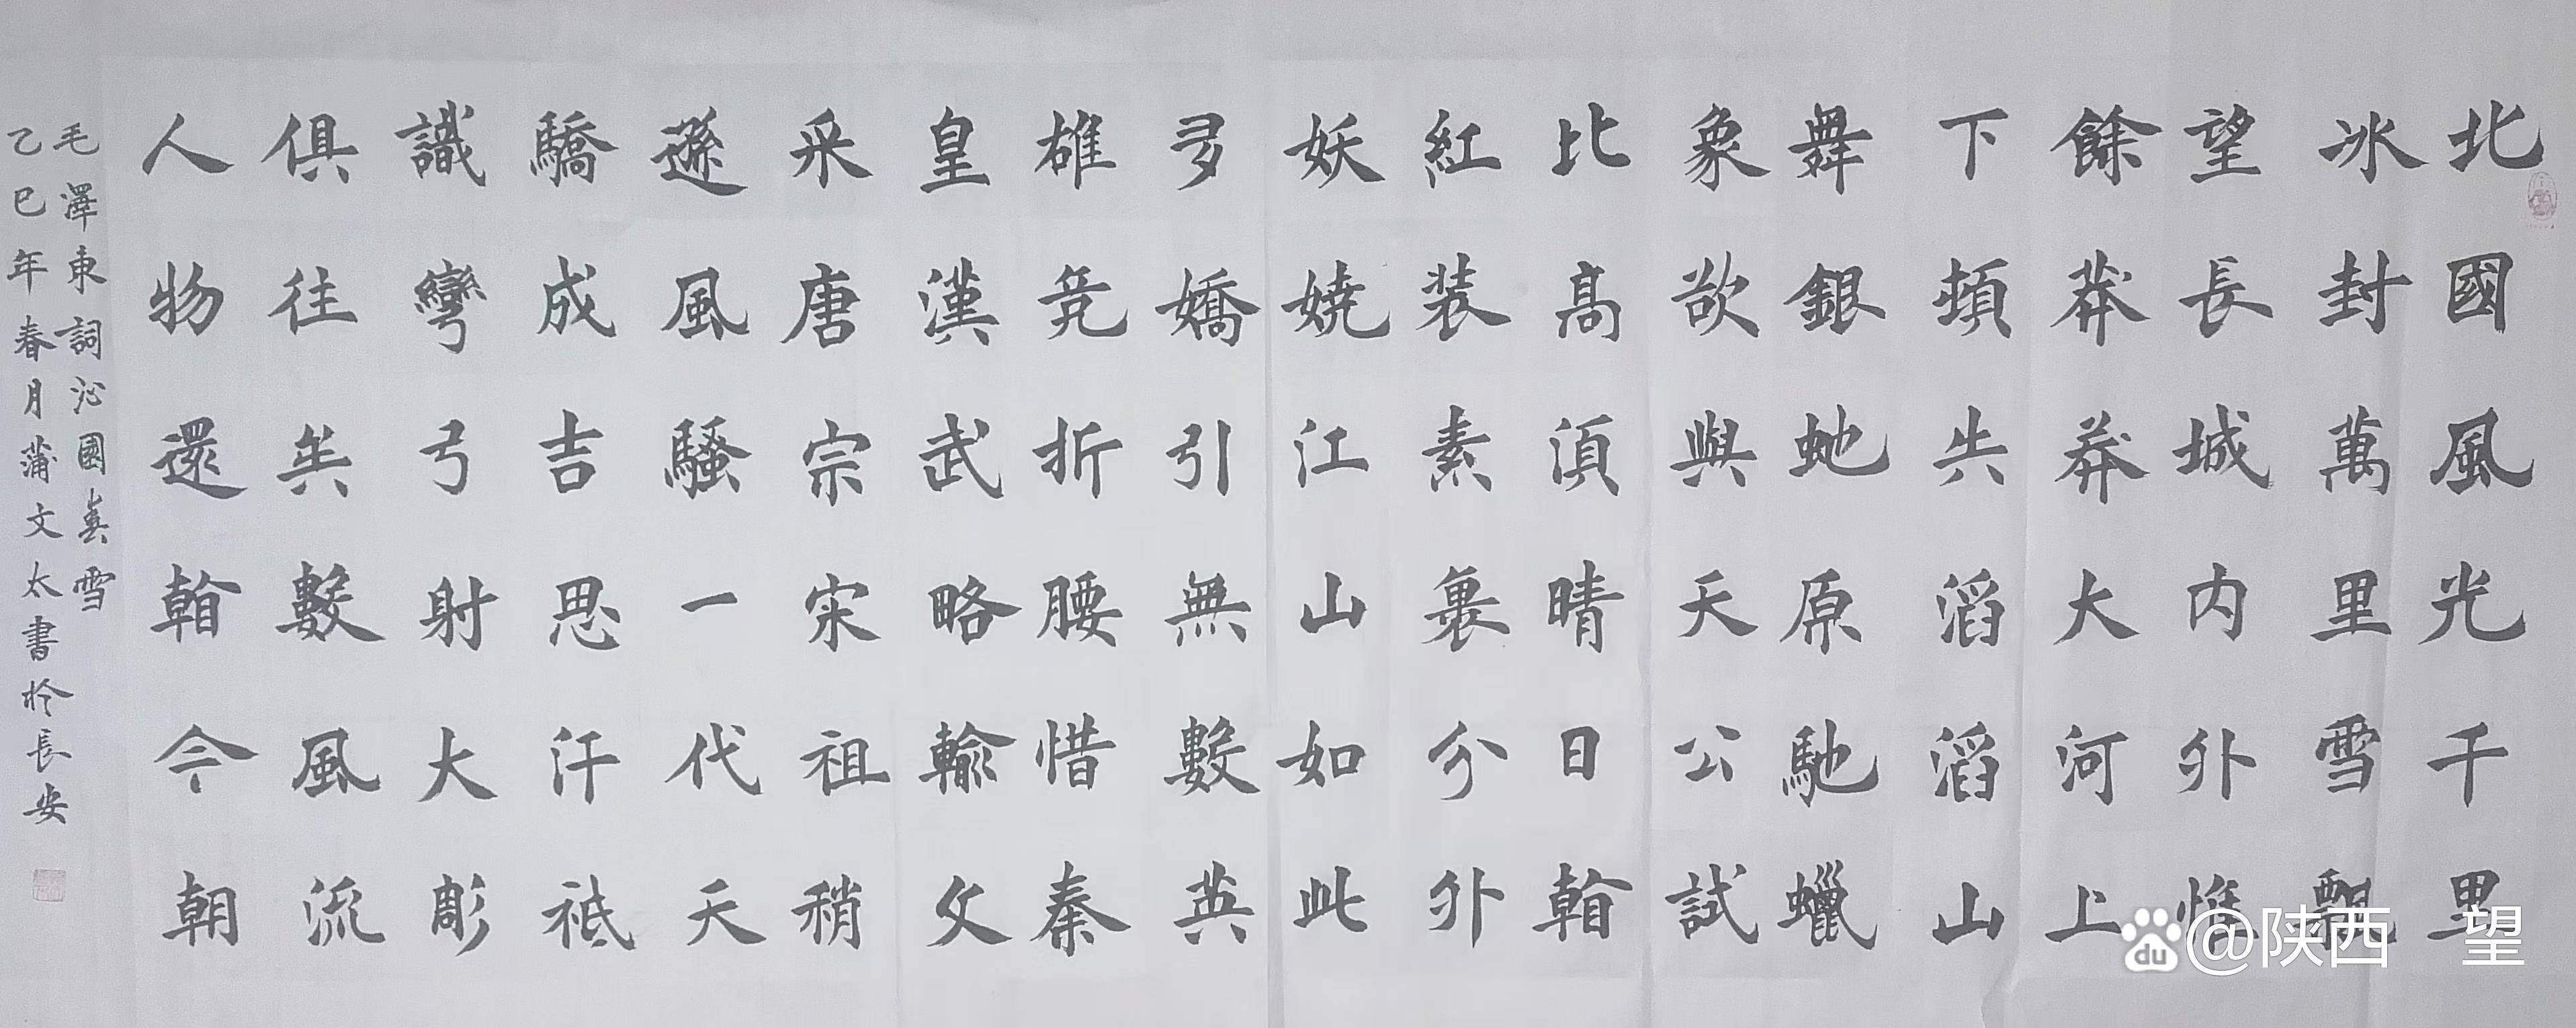 北國風光千里
冰封萬里雪飄
望長城内外惟
餘莽莽大河上
下頓失滔滔山
舞銀虵原馳蠟
象欲與天公試
比高須晴日看
紅装素裹分外
妖嬈江山如此
多嬌引無數英
雄竞折腰惜秦
皇漢武略輸文
采唐宗宋祖稍
遜風騷一代天
驕成吉思汗祗
識彎弓射大彫
俱往矣數風流
人物還看今朝
毛澤東詞沁國春雪
乙巳年春月蒲文太書於長安
du @陕西 望